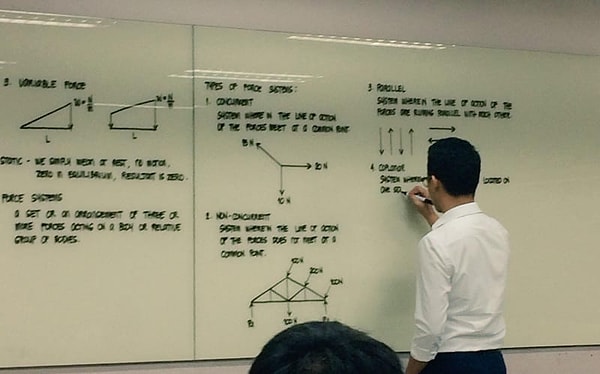 3. VARIABLE FORCE
W = N/M
W = N/M
L
L
STATIC - WE SIMPLY MEAN AT REST, NO MOTION.
ZERO IN EQUILIBRIUM, RESULTANT IS ZERO.
FORCE SYSTEMS
A SET OR AN ARRANGEMENT OF THREE OR
MORE FORCES ACTING ON A BODY OR RELATIVE
GROUP OF BODIES.
TYPES OF FORCE SYSTEMS:
1. CONCURRENT
SYSTEM WHERE IN THE LINE OF ACTION
OF THE FORCES MEET AT A COMMON POINT
15 N
20 N
10 N
2. NON-CONCURRENT
SYSTEM WHEREIN THE LINE OF ACTION
OF THE FORCES DOES NOT MEET AT A
COMMON POINT.
100N
200N
100N
100N
3. PARALLEL
SYSTEM WHEREIN THE LINE OF ACTION OF THE
FORCES ARE RUNNING PARALLEL WITH EACH OTHER.
4. COPLANAR
SYSTEM WHERE LOCATED ON
ONE